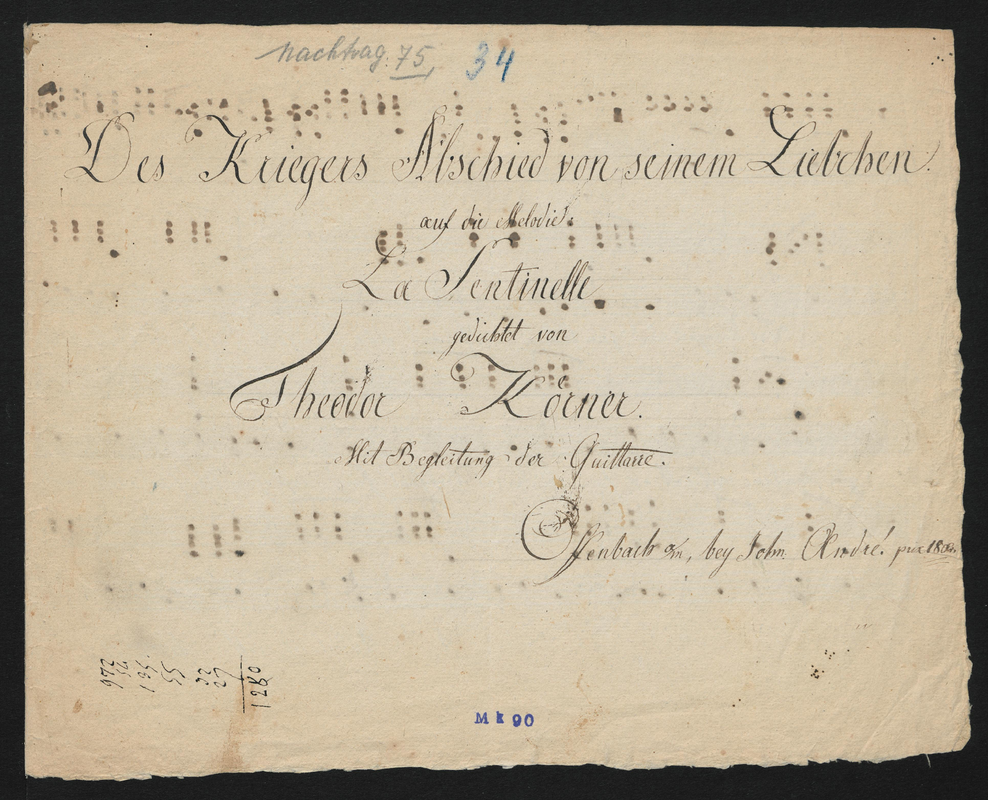 Nachtrag. 75, 34
Des Kriegers Abschied von seinem Liebchen.
auf die Melodie:
La Sentinelle
gedichtet von
Theodor Körner.
Mit Begleitung der Guittarre.
Offenbach a/m, bey Joh. André.
972
135
55
1280
Mk 90